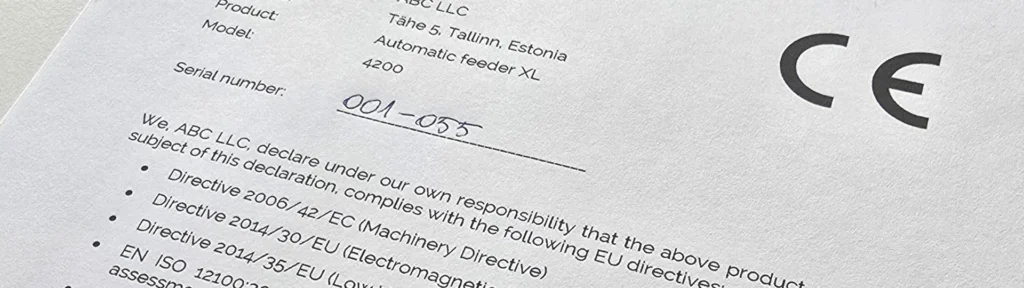 LLC
Tähe 5, Tallinn, Estonia
Product: Automatic feeder XL
Model: 4200
Serial number: 001-055
CE
We, ABC LLC, declare under our own responsibility that the above product
subject of this declaration, complies with the following EU directives:
• Directive 2006/42/EC (Machinery Directive)
• Directive 2014/30/EU (Electromagneti
• Directive 2014/35/EU (Low
• EN ISO 12100:
assessm